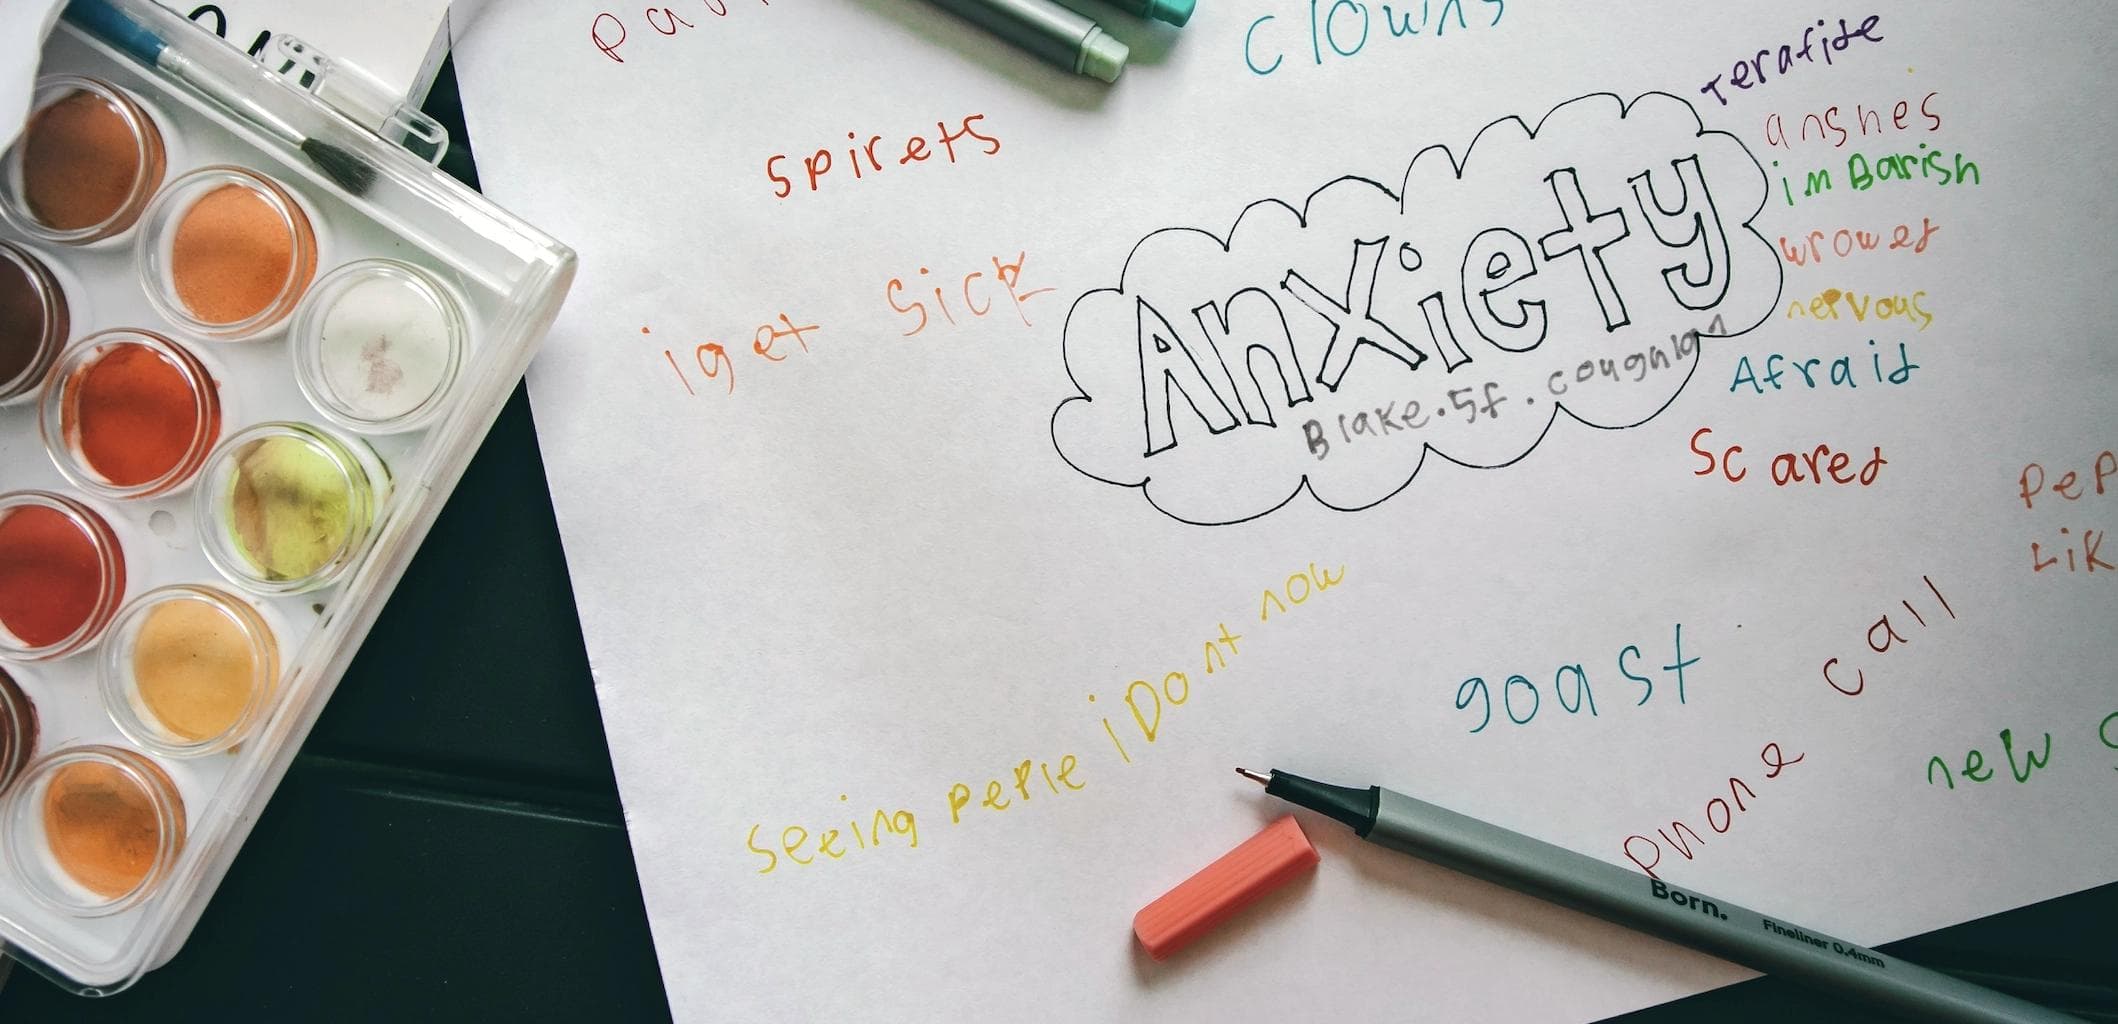 clowns
Terafide
spirets
anshes
imBarish
i get sick
Anxiety
wrowed
nervous
Blake.5f.coughlan
Afraid
Scared
Lik
seeing peple i Dont now
goast
phone call
new
Born. Fineliner 0.4mm